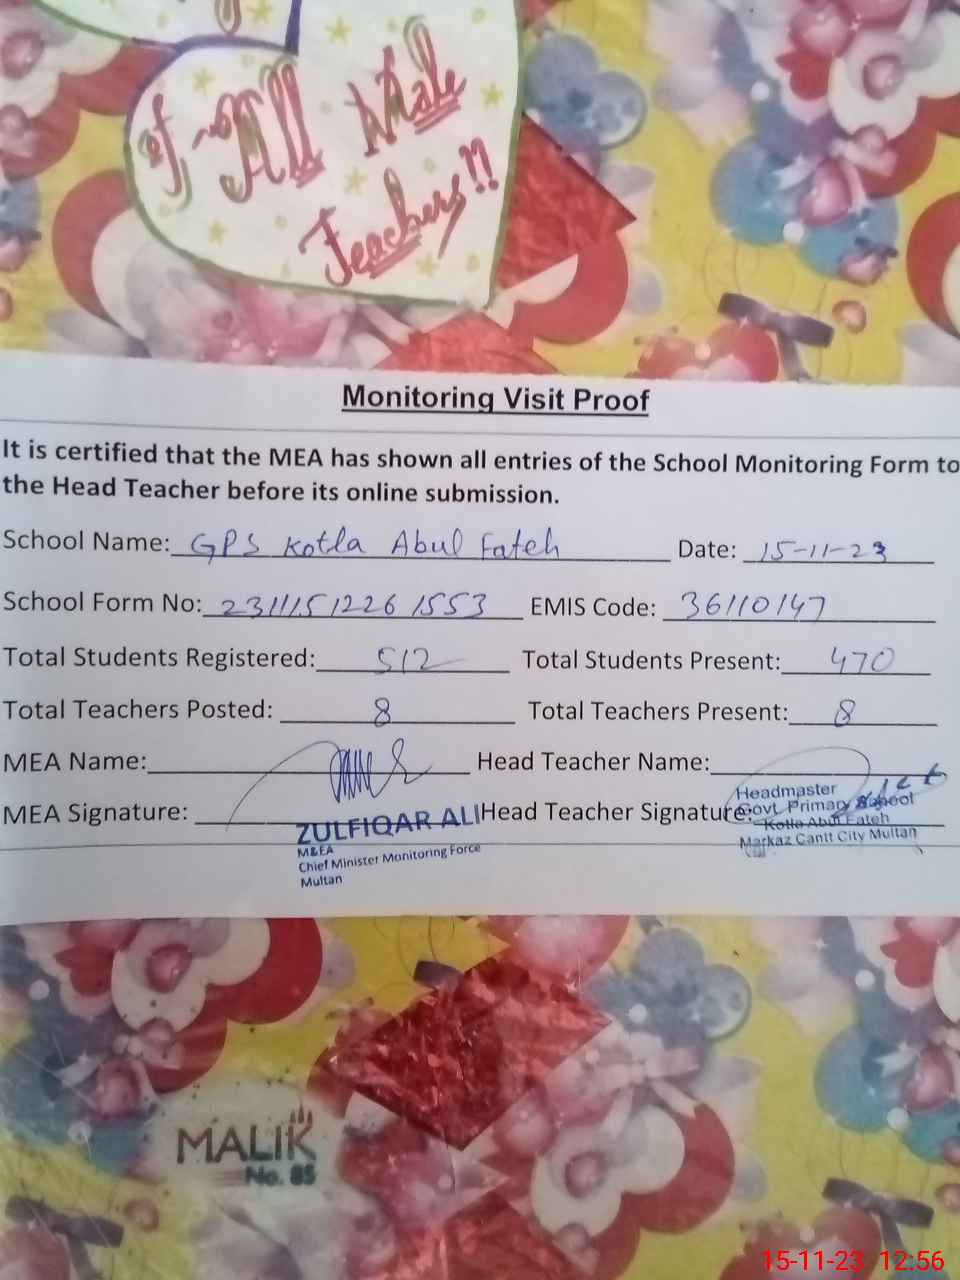 of All Male
Teachers!!
Monitoring Visit Proof
It is certified that the MEA has shown all entries of the School Monitoring Form to
the Head Teacher before its online submission.
School Name: GPS Kotla Abul Fateh Date: 15-11-23
School Form No: 23111512261553 EMIS Code: 36110147
Total Students Registered: 512 Total Students Present: 470
Total Teachers Posted: 8 Total Teachers Present: 8
MEA Name: Head Teacher Name:
MEA Signature: Head Teacher Signature:
ZULFIQAR ALI
M&EA
Chief Minister Monitoring Force
Multan
Headmaster
Govt. Primary School
Kotla Abul Fateh
Markaz Cantt City Multan
MALIK
No. 85
15-11-23 12:56